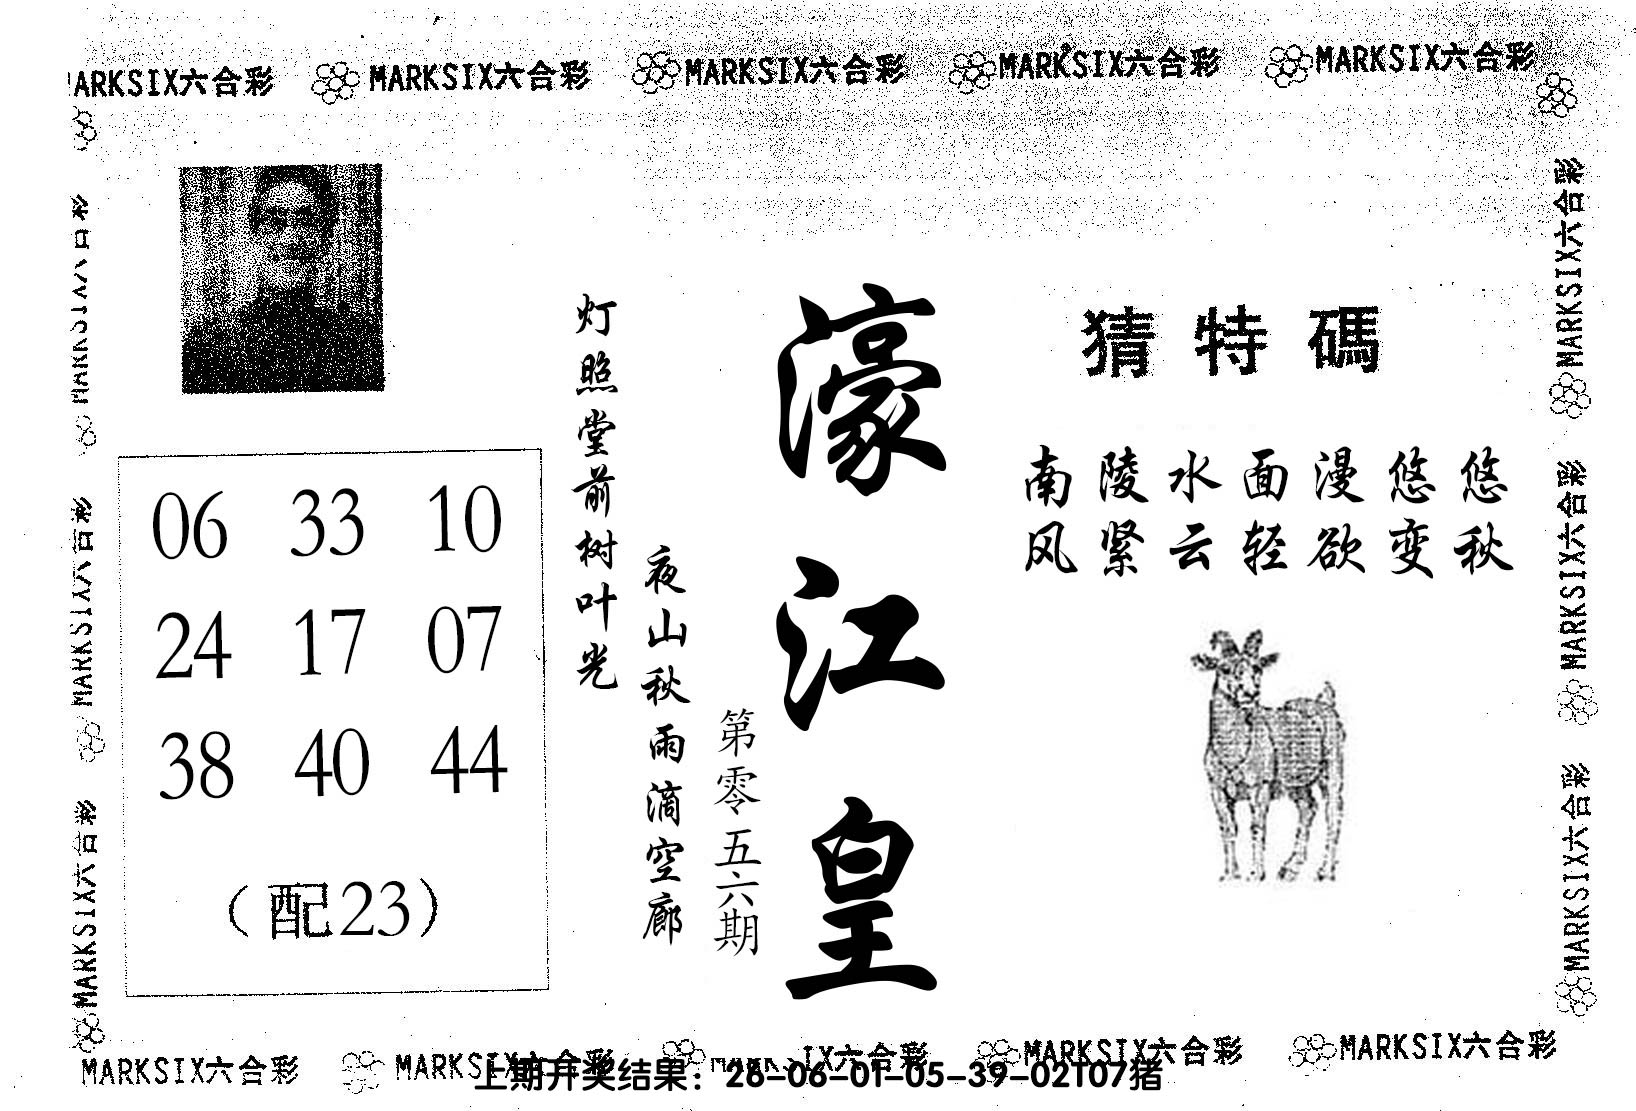 MARKSIX六合彩 MARKSIX六合彩 MARKSIX六合彩 MARKSIX六合彩 MARKSIX六合彩
猜特碼
南陵水面漫悠悠
风紧云轻欲变秋
濠江皇
第零五六期
夜山秋雨滴空廊
灯照堂前树叶光
06 33 10
24 17 07
38 40 44
（配23）
MARKSIX六合彩
MARKSIX六合彩
MARKSIX六合彩
MARKSIX六合彩
MARKSIX六合彩
MARKSIX六合彩
MARKSIX六合彩 MARKSIX六合彩 MARKSIX六合彩 MARKSIX六合彩 MARKSIX六合彩
上期开奖结果：26-06-01-05-39-02T07猪